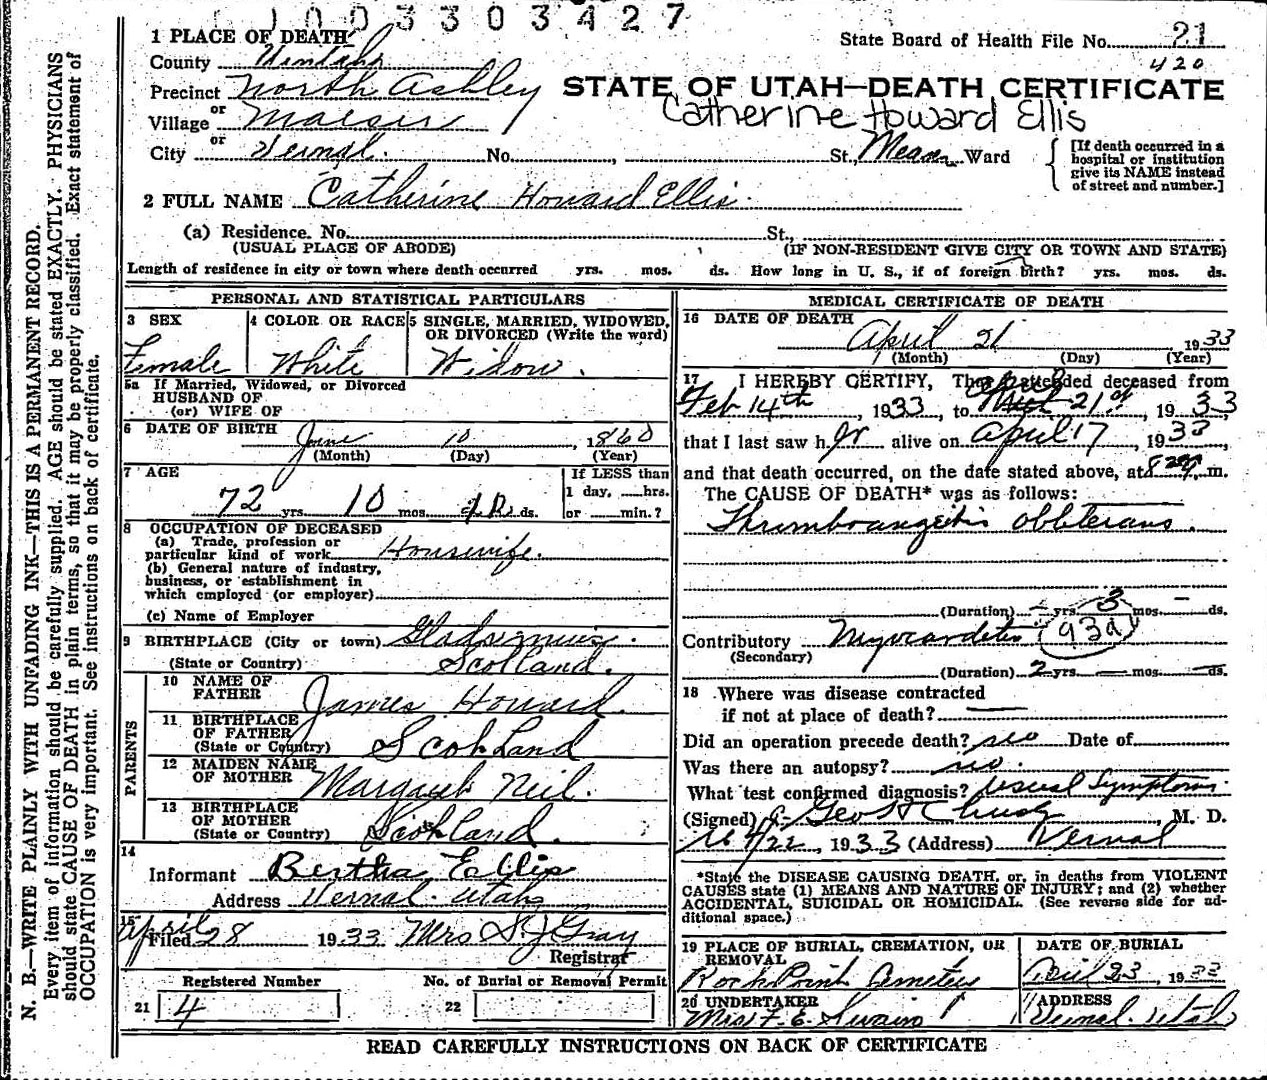 1003303427
1 PLACE OF DEATH
State Board of Health File No. 21
420
County Uintah
STATE OF UTAH—DEATH CERTIFICATE
Precinct North Ashley
Catherine Howard Ellis
or
Village Maeser
or
City Vernal. No. , St., Ward
[If death occurred in a
hospital or institution
give its NAME instead
of street and number.]
2 FULL NAME Catherine Howard Ellis.
(a) Residence. No. St.,
(USUAL PLACE OF ABODE) (IF NON-RESIDENT GIVE CITY OR TOWN AND STATE)
Length of residence in city or town where death occurred yrs. mos. ds. How long in U. S., if of foreign birth? yrs. mos. ds.
PERSONAL AND STATISTICAL PARTICULARS
3 SEX
Female
4 COLOR OR RACE
White
5 SINGLE, MARRIED, WIDOWED,
OR DIVORCED (Write the word)
Widow.
5a If Married, Widowed, or Divorced
HUSBAND OF
(or) WIFE OF
6 DATE OF BIRTH June 10, 1860
(Month) (Day) (Year)
7 AGE
72 yrs. 10 mos. ds.
If LESS than
1 day, hrs.
or min.?
8 OCCUPATION OF DECEASED
(a) Trade, profession or
particular kind of work Housewife.
(b) General nature of industry,
business, or establishment in
which employed (or employer)
(c) Name of Employer
9 BIRTHPLACE (City or town) Gladsmuir.
(State or Country) Scotland.
PARENTS
10 NAME OF
FATHER James Howard.
11 BIRTHPLACE
OF FATHER
(State or Country) Scotland
12 MAIDEN NAME
OF MOTHER Margaret Neil.
13 BIRTHPLACE
OF MOTHER
(State or Country) Scotland.
14
Informant Bertha Ellis
Address Vernal. Utah
15
Filed April 28 1933 Mrs S. J Gray
Registrar
Registered Number No. of Burial or Removal Permit
21 4 22
MEDICAL CERTIFICATE OF DEATH
16 DATE OF DEATH
April 21 1933
(Month) (Day) (Year)
17 I HEREBY CERTIFY, That I attended deceased from
Feb 14th, 1933, to April 21st, 1933
that I last saw her alive on April 17, 1933,
and that death occurred, on the date stated above, at m.
The CAUSE OF DEATH* was as follows:
Thromboangeitis obliterans.
(Duration) — yrs. 3 mos. — ds.
Contributory Myocarditis 93a
(Secondary)
(Duration) 2 yrs. — mos. — ds.
18 Where was disease contracted
if not at place of death? —
Did an operation precede death? no Date of
Was there an autopsy? no.
What test confirmed diagnosis? Usual Symptoms
(Signed) Geo H Christy, M. D.
4/22, 1933 (Address) Vernal
*State the DISEASE CAUSING DEATH, or, in deaths from VIOLENT
CAUSES state (1) MEANS AND NATURE OF INJURY; and (2) whether
ACCIDENTAL, SUICIDAL OR HOMICIDAL. (See reverse side for ad-
ditional space.)
19 PLACE OF BURIAL, CREMATION, OR
REMOVAL
Rock Point Cemetery
DATE OF BURIAL
April 23, 1933
20 UNDERTAKER
Mrs F. E. Swain
ADDRESS
Vernal. Utah
READ CAREFULLY INSTRUCTIONS ON BACK OF CERTIFICATE
N. B.—WRITE PLAINLY WITH UNFADING INK—THIS IS A PERMANENT RECORD.
Every item of information should be carefully supplied. AGE should be stated EXACTLY. PHYSICIANS
should state CAUSE OF DEATH in plain terms, so that it may be properly classified. Exact statement of
OCCUPATION is very important. See instructions on back of certificate.